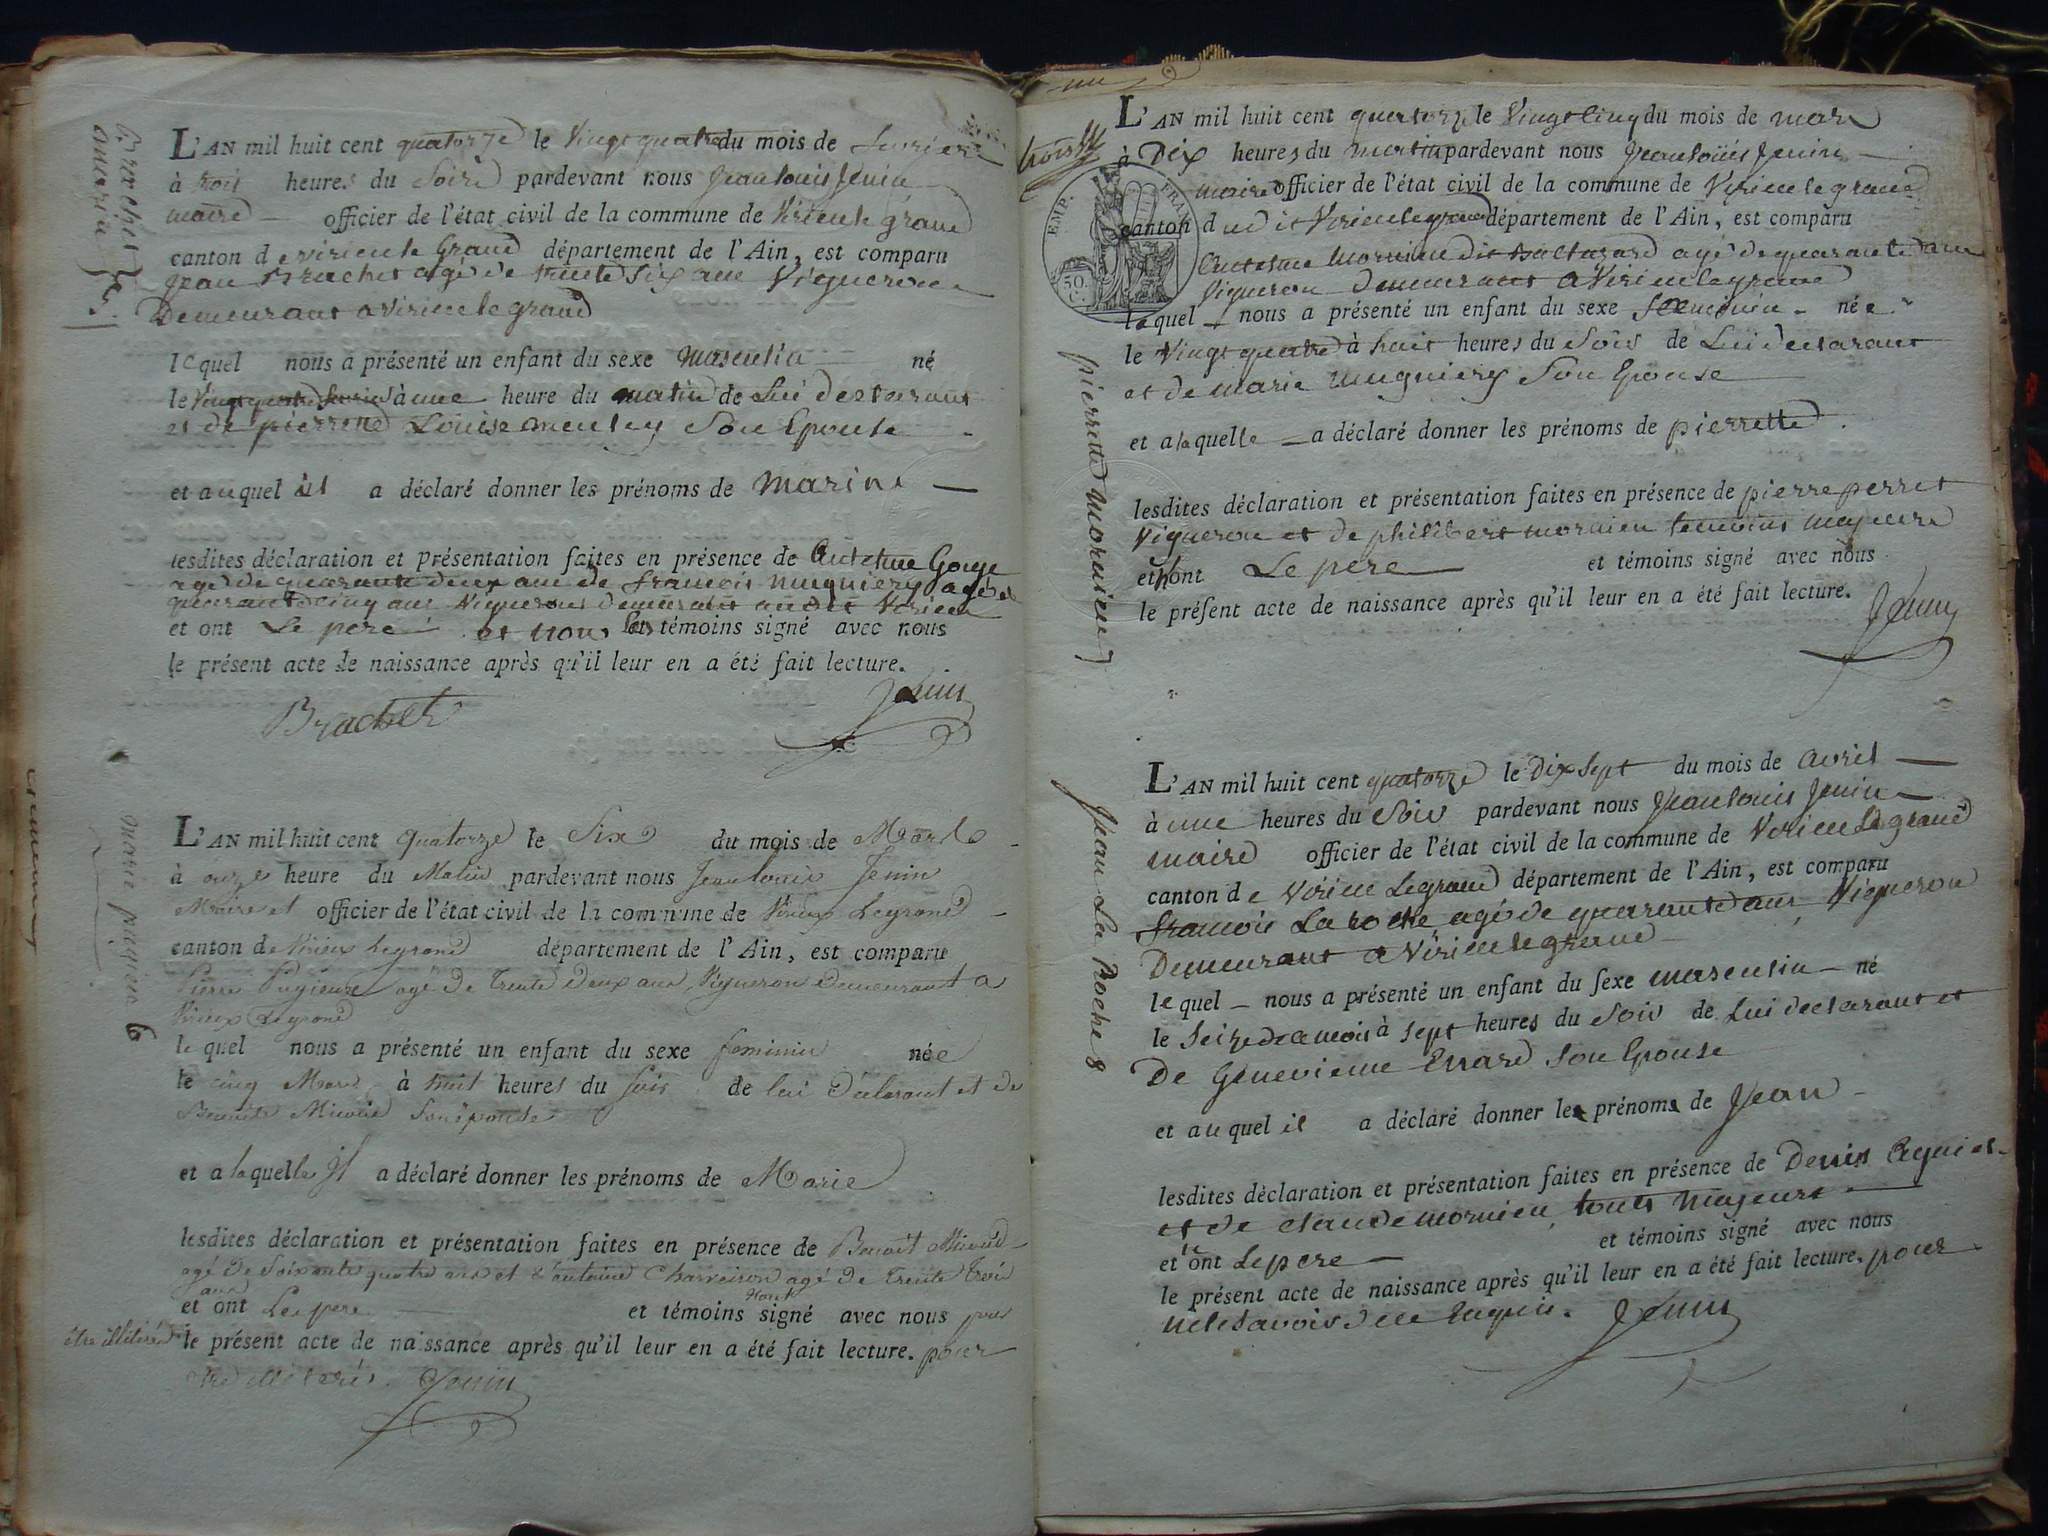 Brachet
L'AN mil huit cent quatorze le vingt quatre du mois de fevrier
à trois heures du Soire pardevant nous Jean louis Jenin
maire officier de l'état civil de la commune de Virieu le grand
canton de virieu le Grand département de l'Ain, est comparu
Jean Brachet agé de trente Six ans Vigneron
Demeurant a Virieu le grand
lequel nous a présenté un enfant du sexe masculin né
le Vingt quatre fevrier à une heure du matin de Lui declarant
et de pierrette Louise Son Epouse
et auquel il a déclaré donner les prénoms de
lesdites déclaration et présentation faites en présence de Antelme Gouje
agé de quarante deux ans de francois mugniery agé de
quarante cinq ans Vignerons demeurant audit Virieu
et ont Le pere et non les témoins signé avec nous
le présent acte de naissance après qu'il leur en a été fait lecture.
Brachet Jenin
marie 6
L'AN mil huit cent quatorze le Six du mois de Mars
à onze heure du Matin pardevant nous Jean louis Jenin
Maire et officier de l'état civil de la commune de Virieux Legrand
canton de Virieux Legrand département de l'Ain, est comparu
Pierre agé de trente Deux ans, Vigneron Demeurant a
Virieux Legrand
lequel nous a présenté un enfant du sexe feminin née
le cinq Mars à huit heures du soir de lui déclarant et de
Benoite Son épouse
et a laquelle Il a déclaré donner les prénoms de Marie
lesdites déclaration et présentation faites en présence de Benoit
agé de Soixante quatre ans et d'antoine agé de trente trois
ans
et ont Le pere et témoins nont signé avec nous pour
être illiterés le présent acte de naissance après qu'il leur en a été fait lecture. pour
être illiterés. Jenin
EMP. FRAN.
50. C.
L'AN mil huit cent quatorze le Vingt cinq du mois de mars
à Dix heures du matin pardevant nous Jean louis Jenin
maire officier de l'état civil de la commune de Virieu le grand
canton dudit Virieu le grand département de l'Ain, est comparu
Antelme mornieu dit Baltazard agé de quarante ans
Vigneron Demeurant a Virieu le grand
lequel nous a présenté un enfant du sexe feminin née
le Vingt quatre à huit heures du Soir de Lui declarant
et de marie mugniery Son Epouse
et a laquelle a déclaré donner les prénoms de pierrette
lesdites déclaration et présentation faites en présence de pierre perret
Vigneron et de philibert mornieu temoins majeurs
et n'ont Le pere et témoins signé avec nous
le présent acte de naissance après qu'il leur en a été fait lecture.
Jenin
pierrette mornieu 7
L'AN mil huit cent quatorze le Dix Sept du mois de avril
à une heures du Soir pardevant nous Jean louis Jenin
maire officier de l'état civil de la commune de Virieu Le grand
canton de Virieu Le grand département de l'Ain, est comparu
francois La roche agé de quarante ans, Vigneron
Demeurant a Virieu le grand
lequel nous a présenté un enfant du sexe masculin né
le Seize de ce mois à Sept heures du Soir de Lui declarant et
De Genevieme Errard Son Epouse
et auquel il a déclaré donner les prénoms de Jean
lesdites déclaration et présentation faites en présence de Denis
et de claude mornieu, touts majeurs
et n'ont Le pere et témoins signé avec nous
le présent acte de naissance après qu'il leur en a été fait lecture. pour
ne le Savoir de ce requis. Jenin
Jean La Roche 8